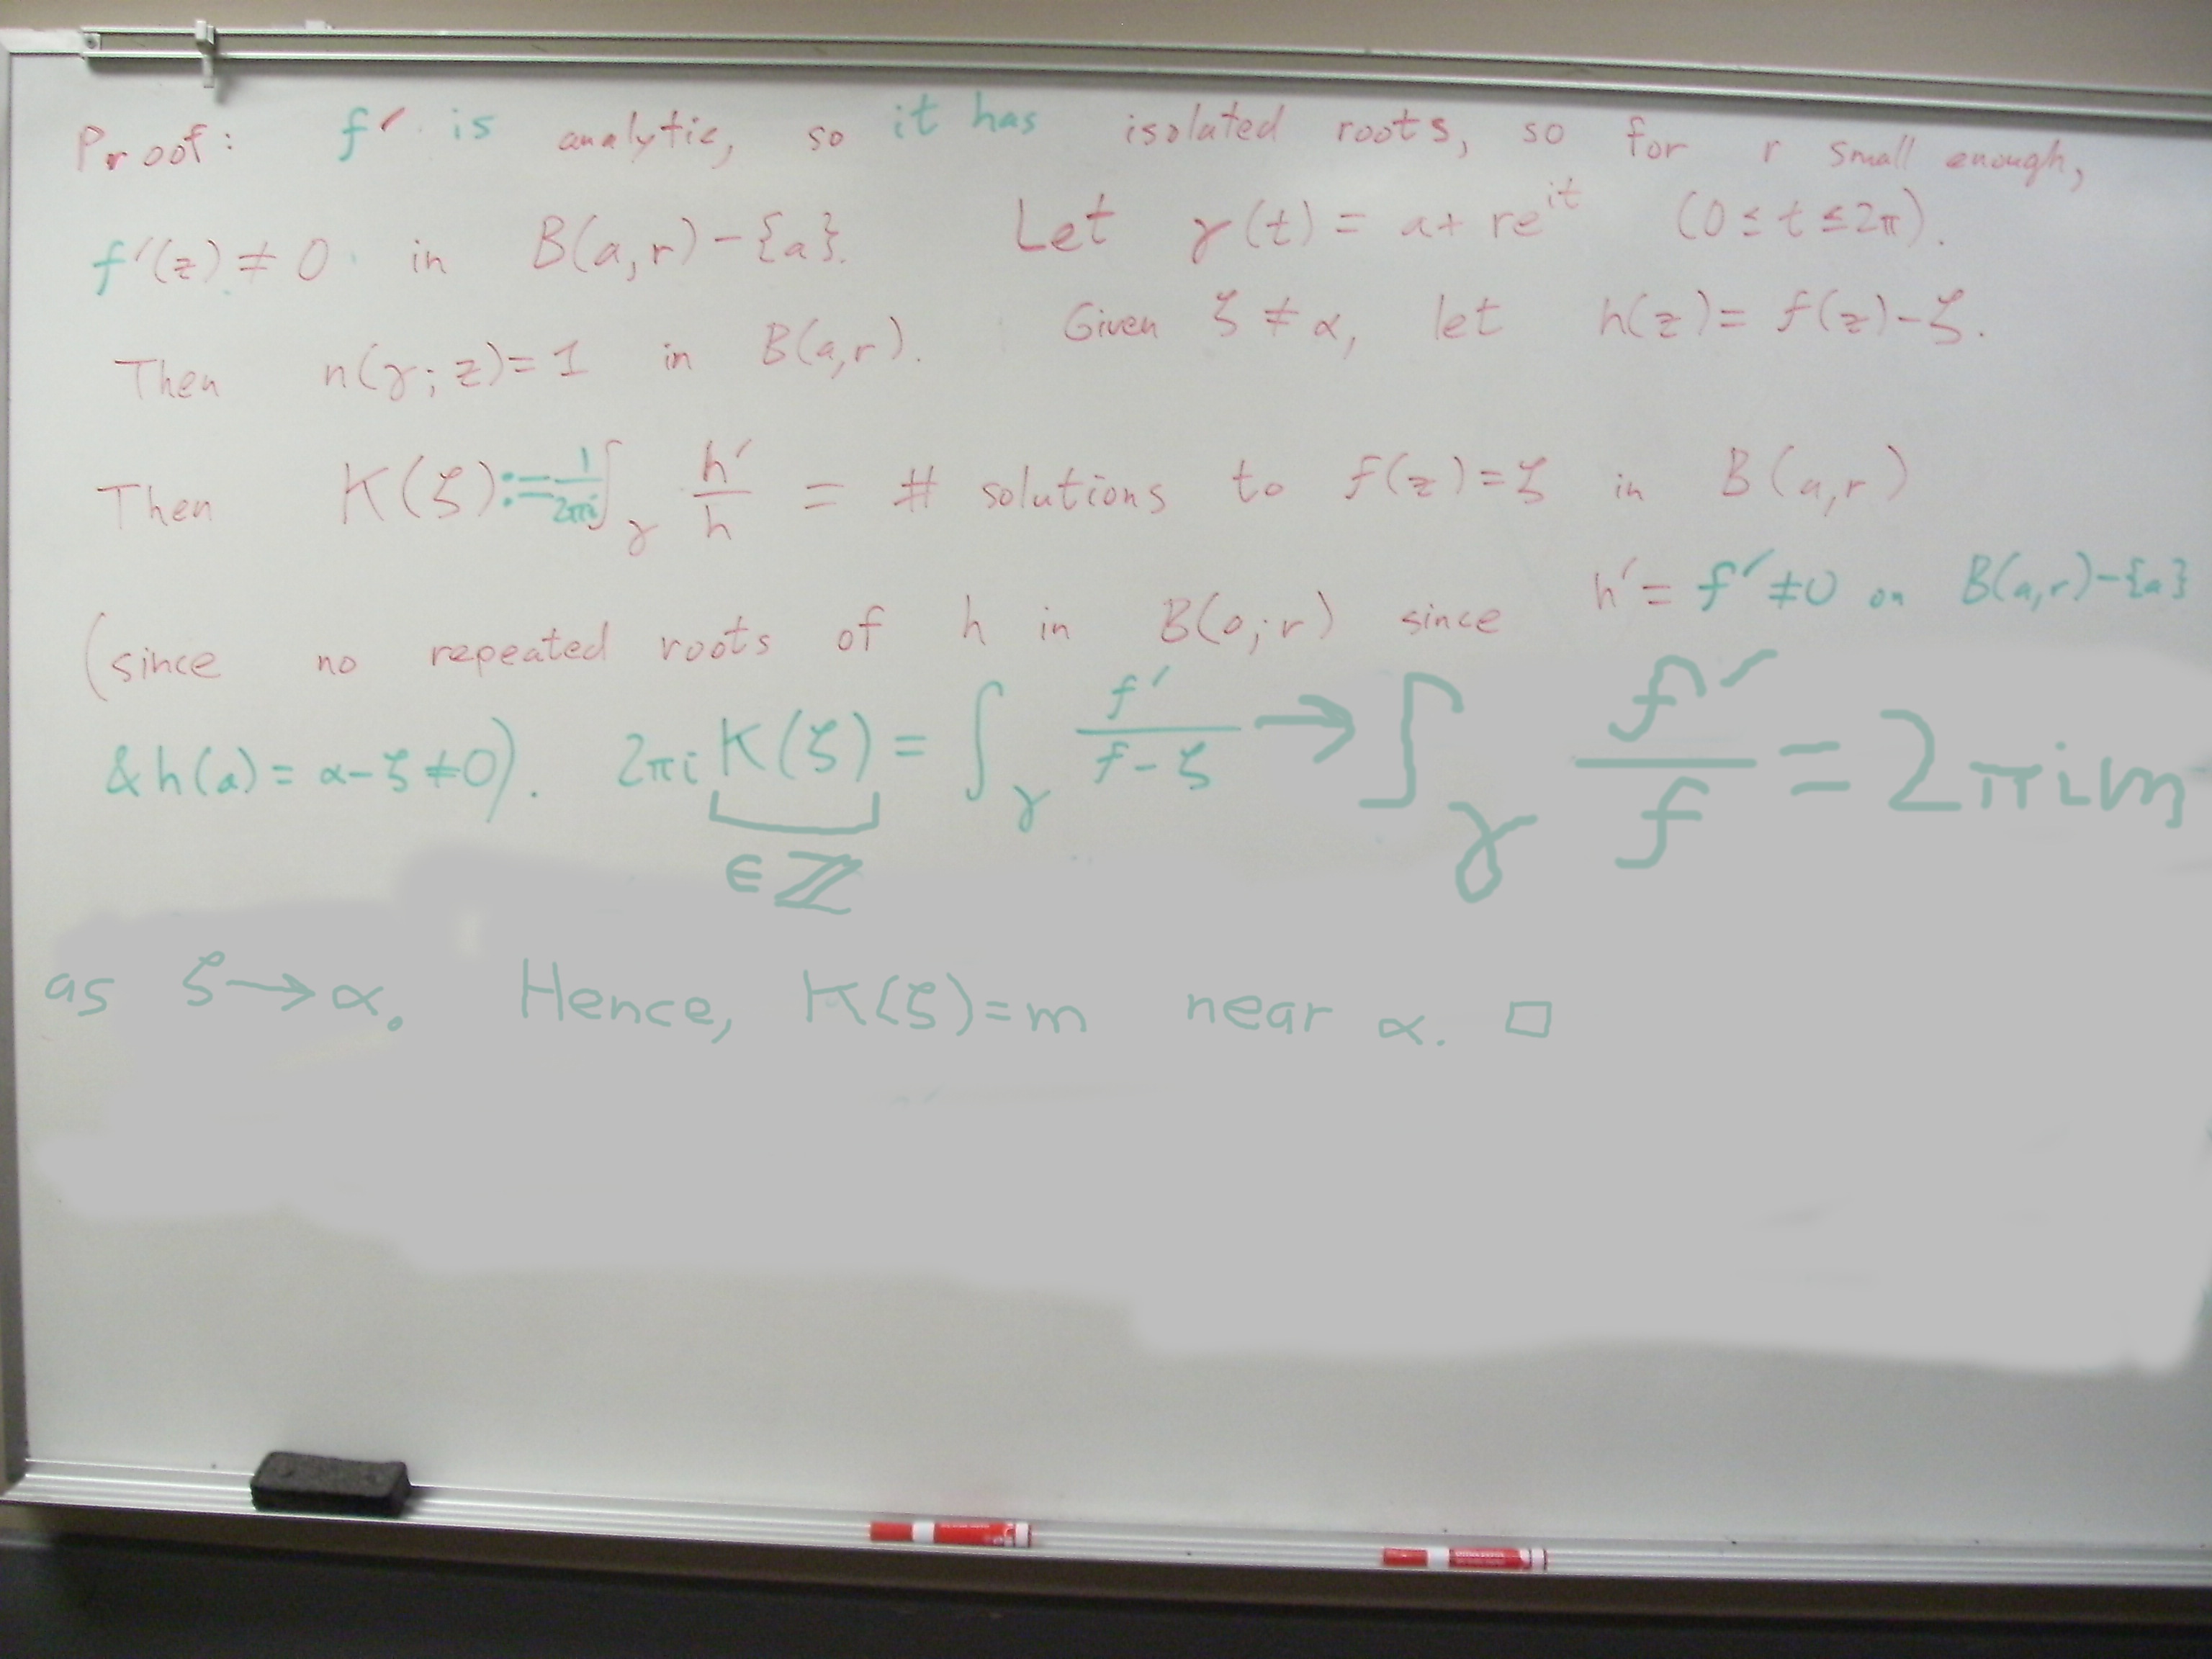 Proof: f′ is analytic, so it has isolated roots, so for r small enough,
f′(z) ≠ 0 in B(a,r) – {a}. Let γ(t) = a + re^{it} (0 ≤ t ≤ 2π).
Then n(γ; z) = 1 in B(a,r). Given ζ ≠ α, let h(z) = f(z) – ζ.
Then K(ζ) := \frac{1}{2πi} ∫_γ \frac{h′}{h} = # solutions to f(z) = ζ in B(a,r)
(since no repeated roots of h in B(a;r) since h′ = f′ ≠ 0 on B(a,r) – {a}
& h(a) = α – ζ ≠ 0). 2πi K(ζ) = ∫_γ \frac{f′}{f – ζ} → ∫_γ \frac{f′}{f} = 2πim
∈ ℤ
as ζ → α. Hence, K(ζ) = m near α. □